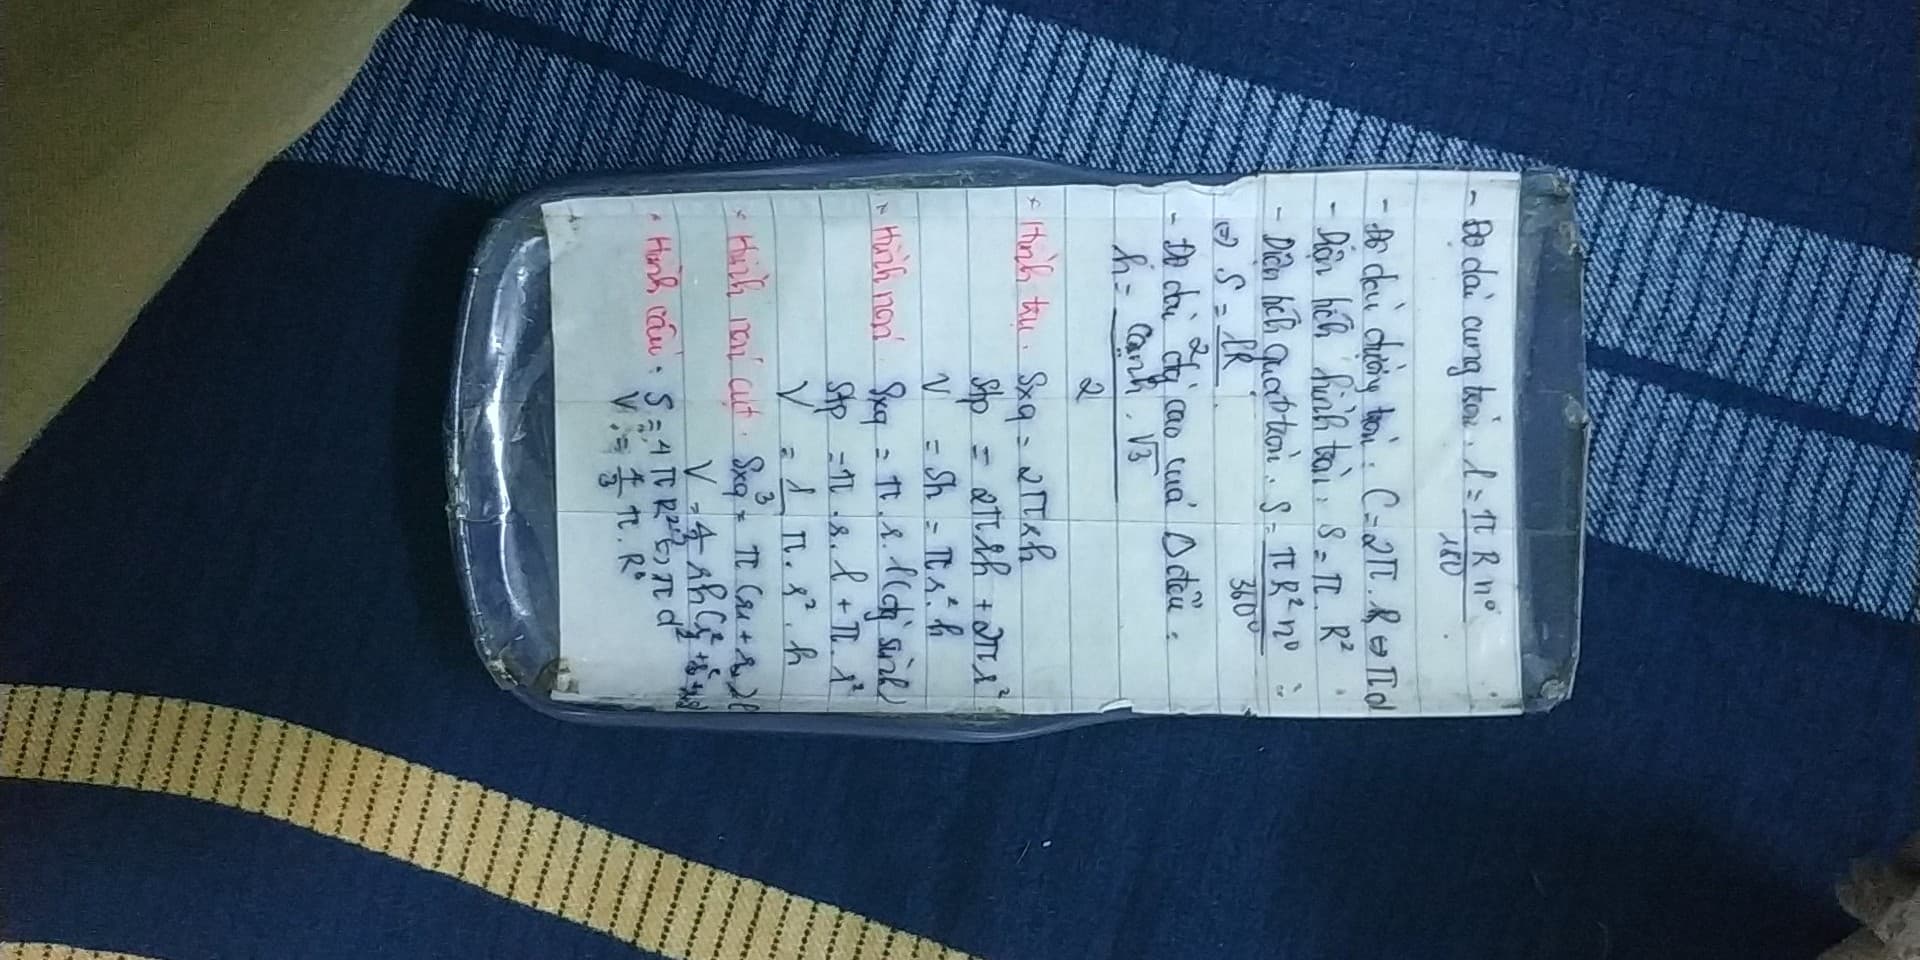 - Độ dài cung tròn: l = π R n° / 180
- Độ dài đường tròn: C = 2π.R ⇔ πd
- Diện tích hình tròn: S = π.R²
- Diện tích quạt tròn: S = πR²n° / 360°
⇔ S = lR / 2
- Độ dài đg cao của Δ đều:
h = cạnh.√3 / 2
* Hình trụ: Sxq = 2πrh
Stp = 2πrh + 2πr²
V = Sh = πr².h
* Hình nón: Sxq = π.r.l (đg sinh)
Stp = π.r.l + π.r²
V = 1/3 π.r².h
* Hình nón cụt: Sxq = π(r₁ + r₂)l
* Hình cầu: S = 4πR² ⇔ πd²